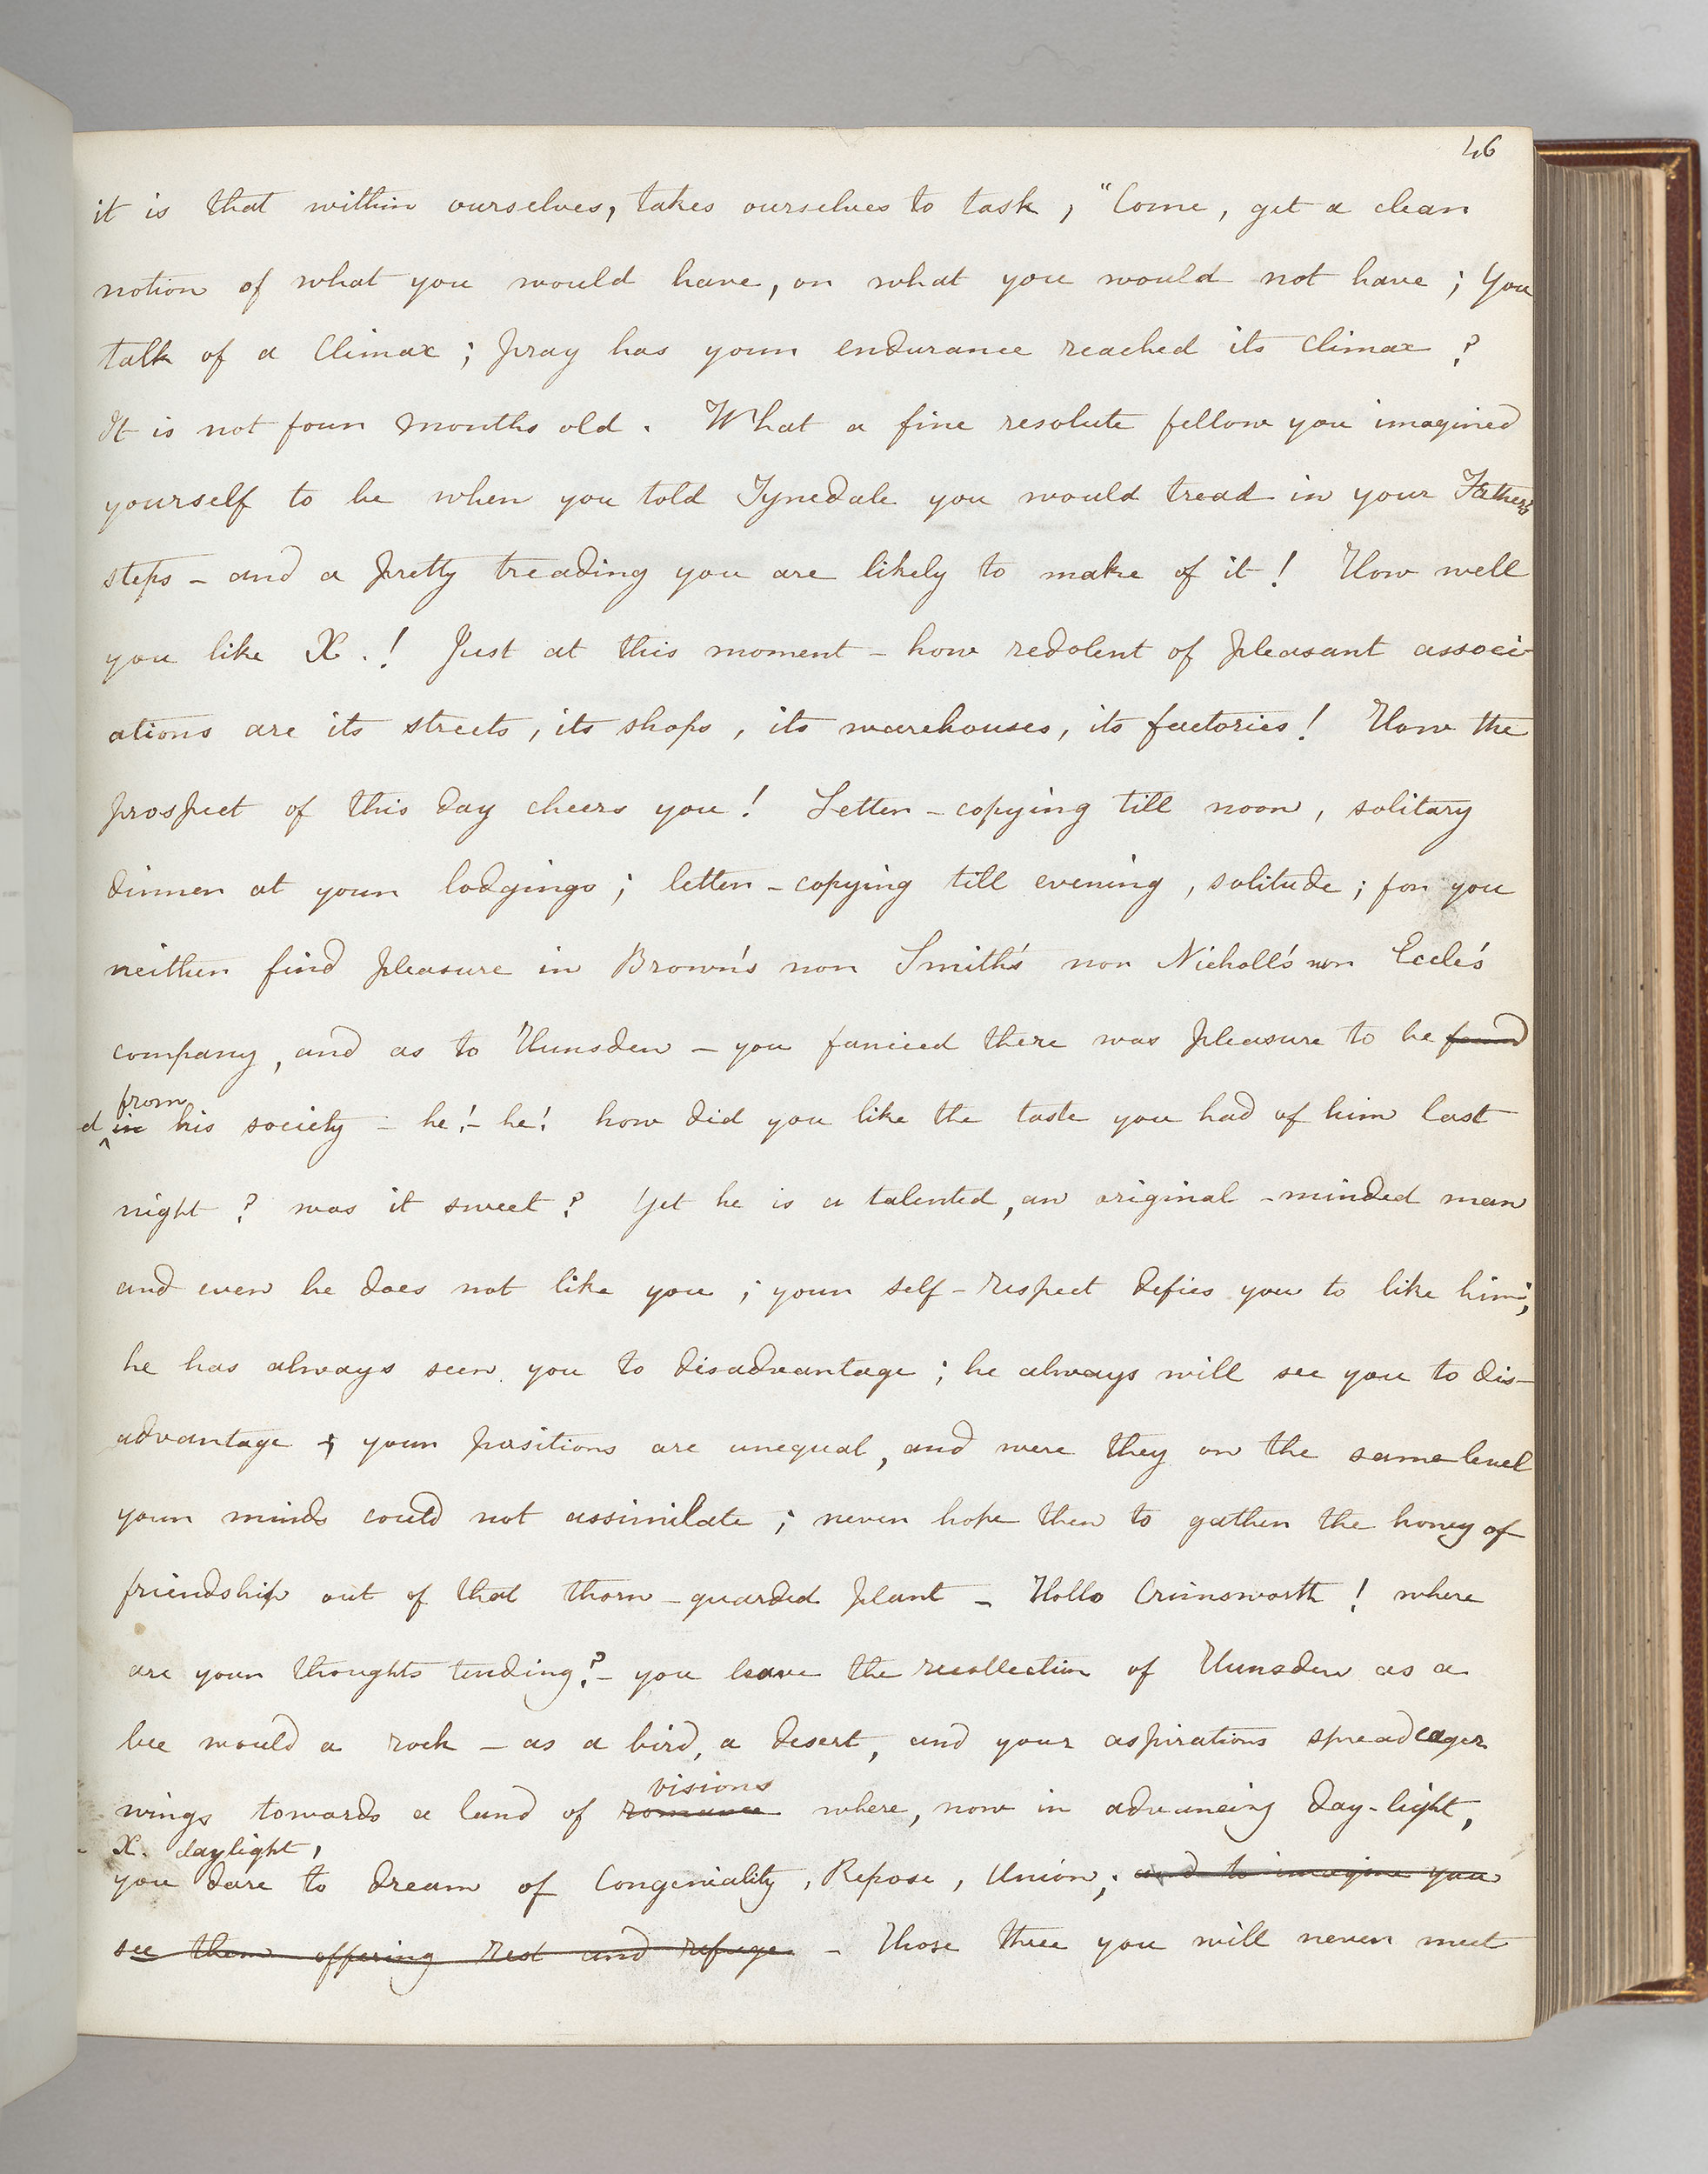 46
it is that within ourselves, takes ourselves to task, "Come, get a clear
notion of what you would have, or what you would not have; You
talk of a Climax; pray has your endurance reached its climax?
It is not four months old. What a fine resolute fellow you imagined
yourself to be when you told Tynedale you would tread in your Father's
steps - and a pretty treading you are likely to make of it! How well
you like X.! Just at this moment - how redolent of pleasant associ-
ations are its streets, its shops, its warehouses, its factories! How the
prospect of this day cheers you! Letter-copying till noon, solitary
dinner at your lodgings; letter-copying till evening, solitude; for you
neither find pleasure in Brown's nor Smith's nor Nicholl's nor Eccle's
company, and as to Hunsden - you fancied there was pleasure to be found
from
d in his society - he! - he! how did you like the taste you had of him last
night? was it sweet? Yet he is a talented, an original-minded man
and even he does not like you; your self-respect defies you to like him;
he has always seen you to disadvantage; he always will see you to dis-
advantage; your positions are unequal, and were they on the same level
your minds could not assimilate; never hope then to gather the honey of
friendship out of that thorn-guarded plant - Hollo Crimsworth! where
are your thoughts tending? - you leave the recollection of Hunsden as a
bee would a rock - as a bird, a desert, and your aspirations spread eager
visions
wings towards a land of romance where, now in advancing day-light,
X. daylight,
you dare to dream of Congeniality, Repose, Union; and to imagine you
see them offering rest and refuge. - Those three you will never meet